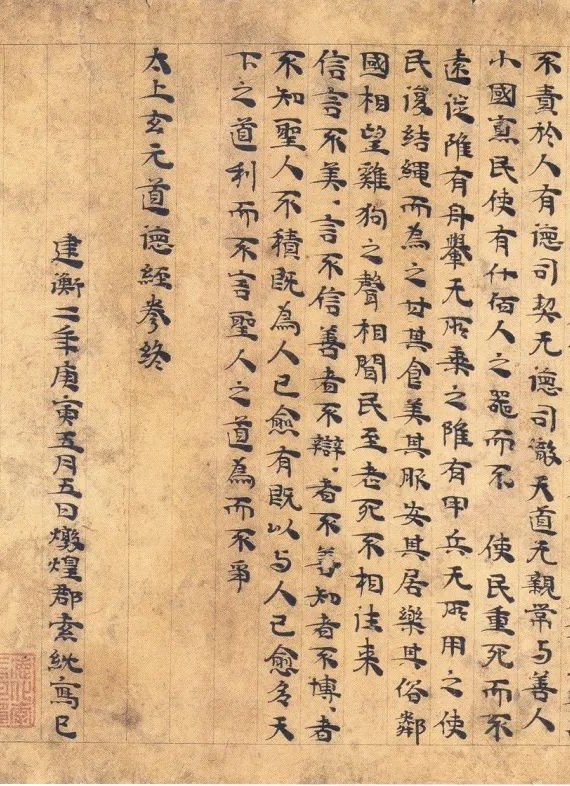 不責於人有德司契无德司徹天道无親常与善人
小國寡民使有什佰人之器而不 使民重死而不
遠徙雖有舟轝无所乘之雖有甲兵无所用之使
民復結繩而為之甘其食美其服安其居樂其俗鄰
國相望雞狗之聲相聞民至老死不相往来
信言不美、言不信善者不辯、者不善知者不博、者
不知聖人不積既為人已愈有既以与人已愈多天
下之道利而不害聖人之道為而不爭
太上玄元道德經卷終
建衡二年庚寅五月五日燉煌郡索紞寫已